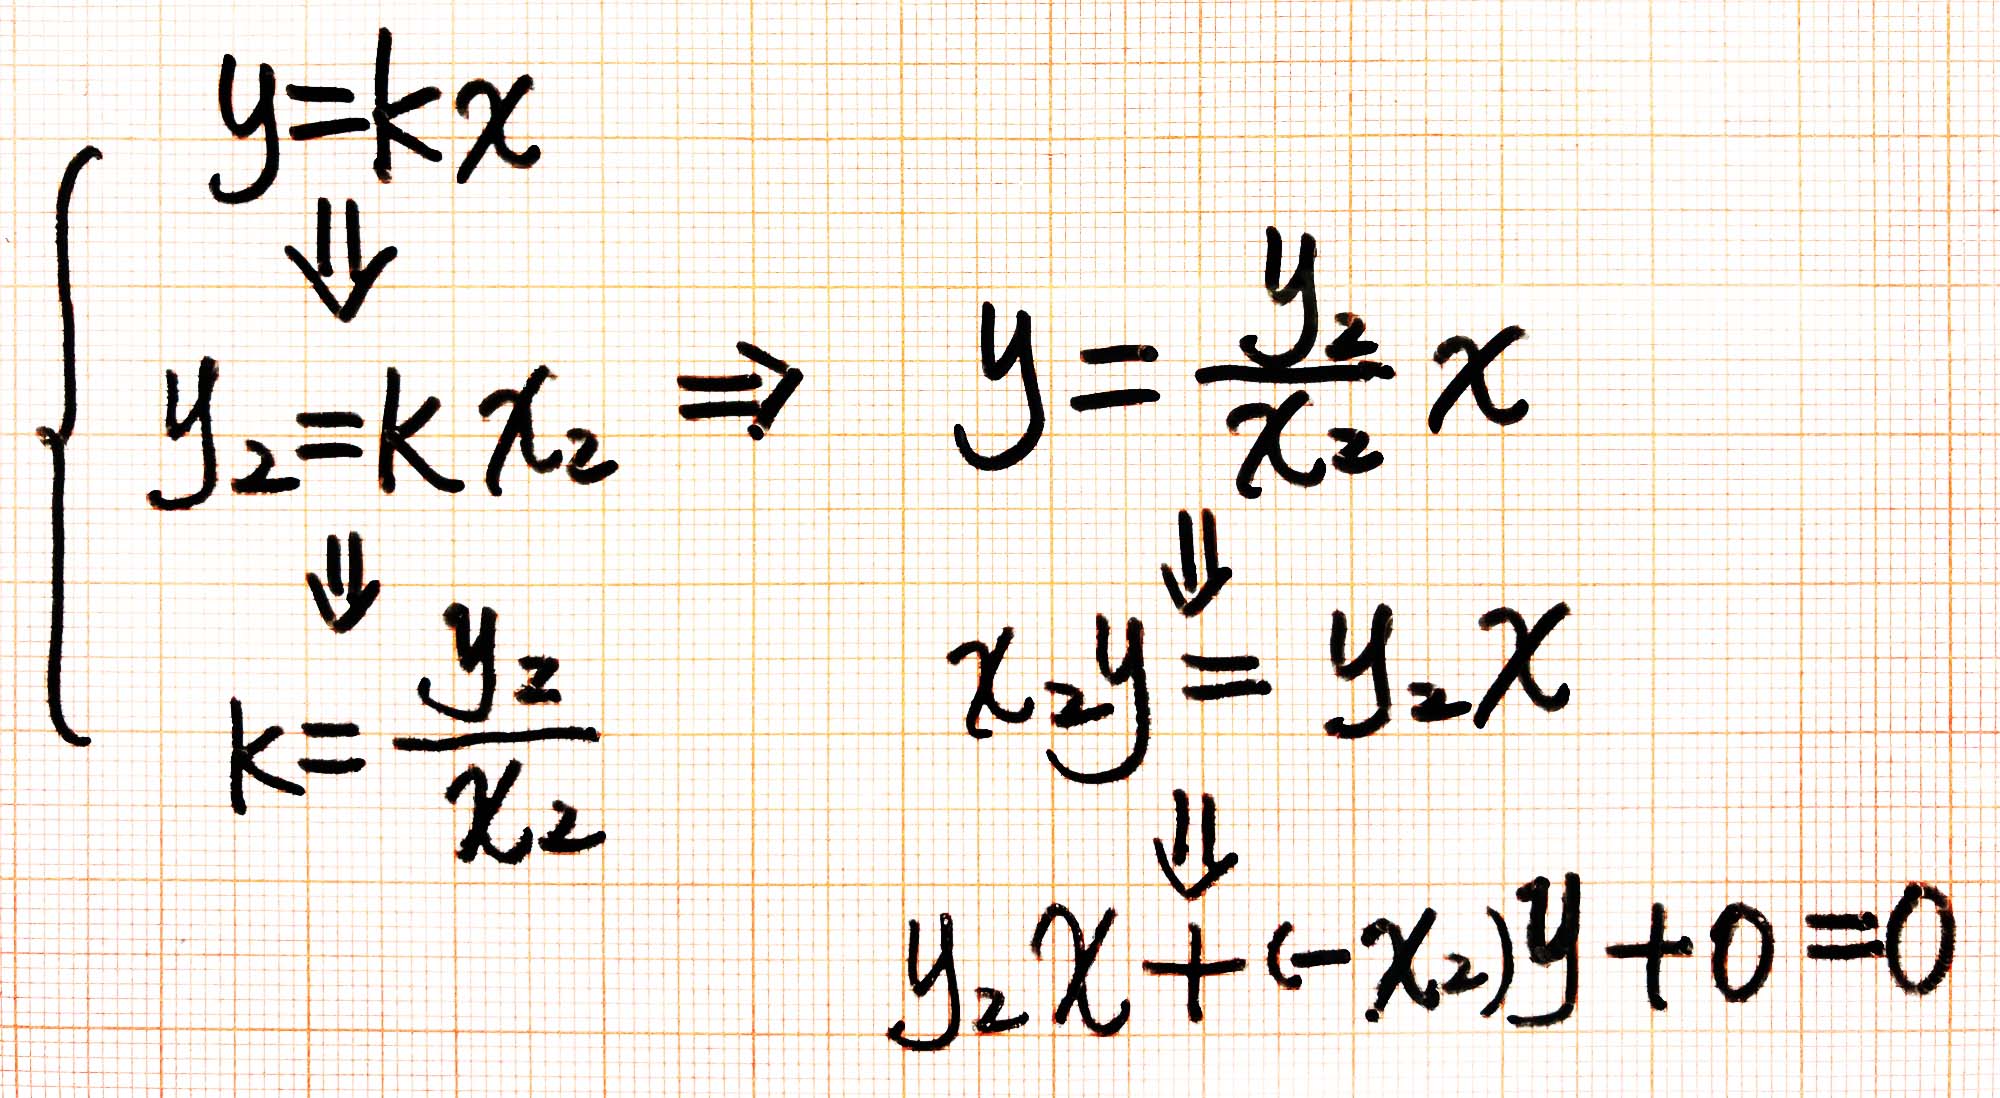 y=kx
⇓
y₂=kx₂ ⇒ y=y₂/x₂ x
⇓
k=y₂/x₂
⇓
x₂y=y₂x
⇓
y₂x+(-x₂)y+0=0